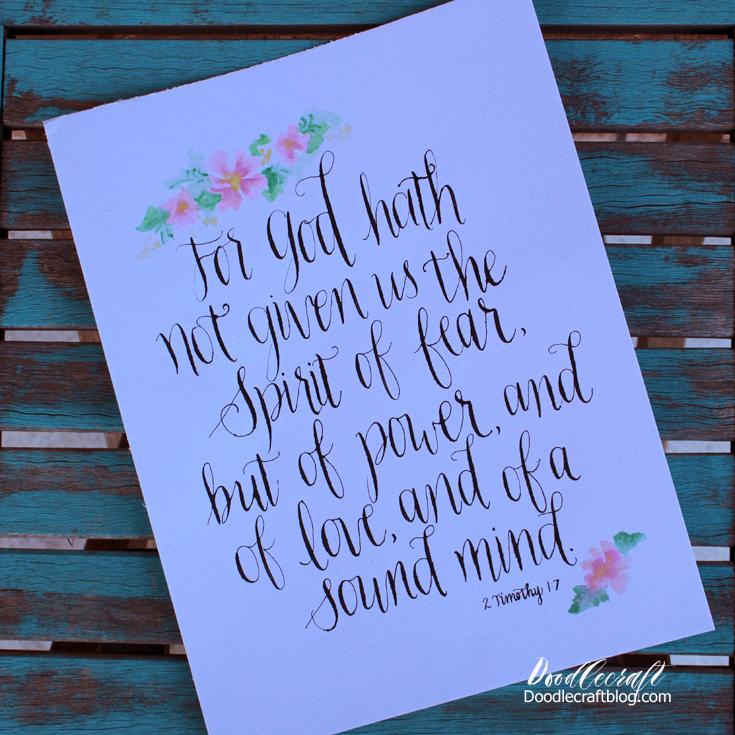 For God hath
not given us the
Spirit of fear,
but of power, and
of love, and of a
sound mind.
2 Timothy 1:7
Doodlecraft
Doodlecraftblog.com